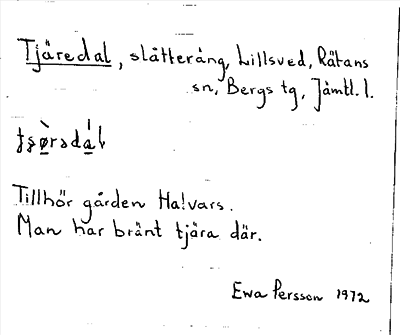 Tjäredal, slåtteräng, Lillsved, Rätans
sn, Bergs tg, Jämtl. l.
Tillhör gården Halvars.
Man har bränt tjära där.
Ewa Persson 1972